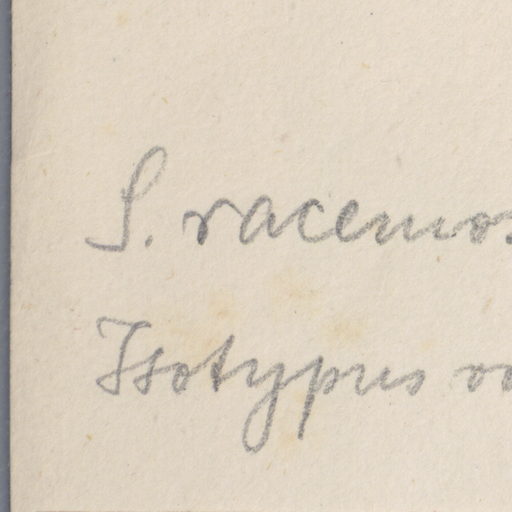 S. racemos
Isotypus